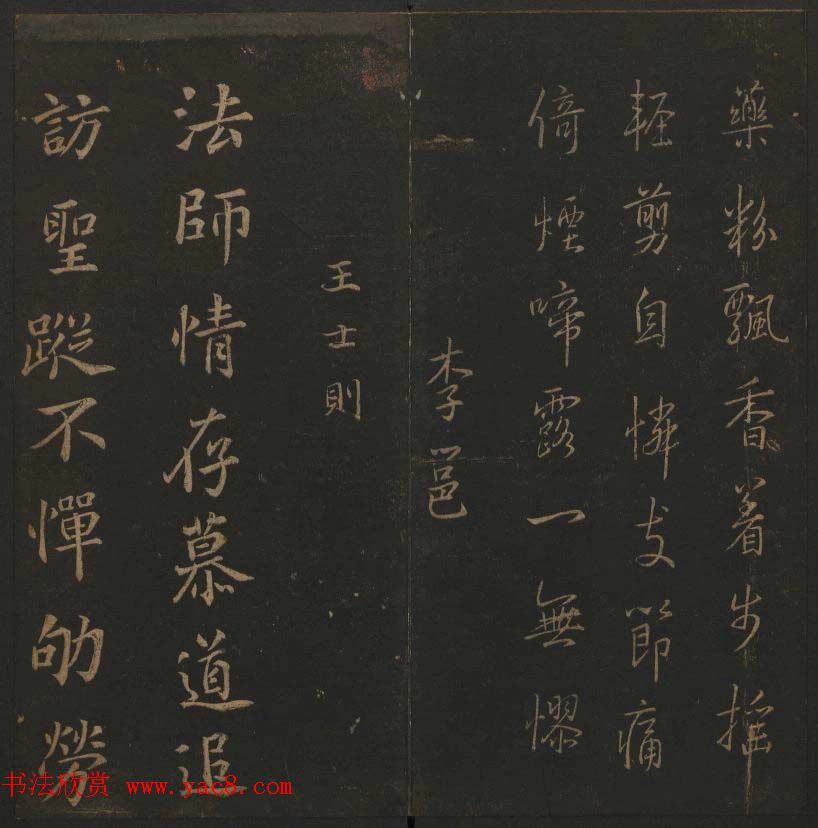 藥粉飄香着步搖
輕剪自憐支節痛
倚煙啼露一無憀
李邕
王士則
法師情存慕道追
訪聖蹤不憚劬勞
书法欣赏 www.yac8.com